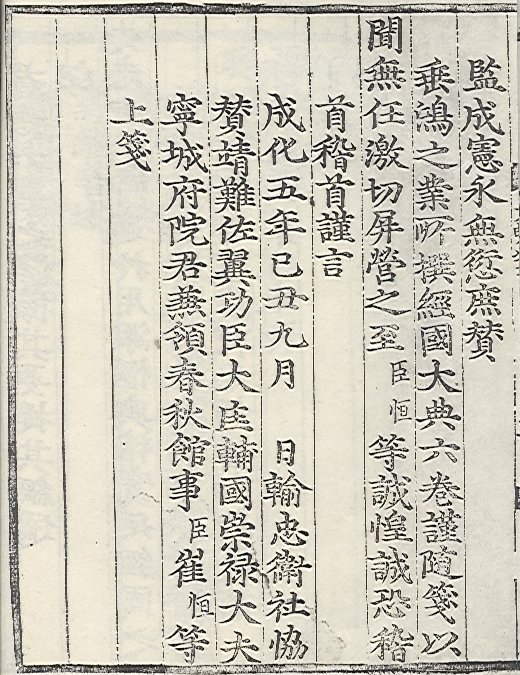 監成憲永無愆庶贊
垂鴻之業所撰經國大典六卷謹隨箋以
聞無任激切屛營之至臣恒等誠惶誠恐稽
首稽首謹言
成化五年己丑九月 日輸忠衛社恊
贊靖難佐翼功臣大匡輔國崇禄大夫
寧城府院君兼領春秋館事臣崔恒等
上箋